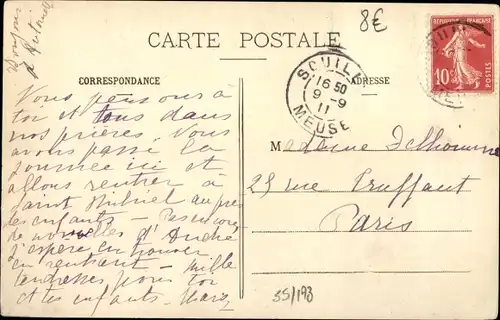 Bonjour
à
8€
CARTE POSTALE
CORRESPONDANCE
ADRESSE
SOUILLY
16 50
9 - 9
11
MEUSE
10c
Vous pensons à
toi et tous dans
nos prières. Vous
avons passé la
journée ici et
allons rentrer à
Saint Mihiel auprès
les enfants - Pas encore
de nouvelles d'André
j'espère en trouver
en rentrant - Mille
tendresses pour toi
et tes enfants. Marie
Madame Delhomme
25 rue Truffaut
Paris
35/193